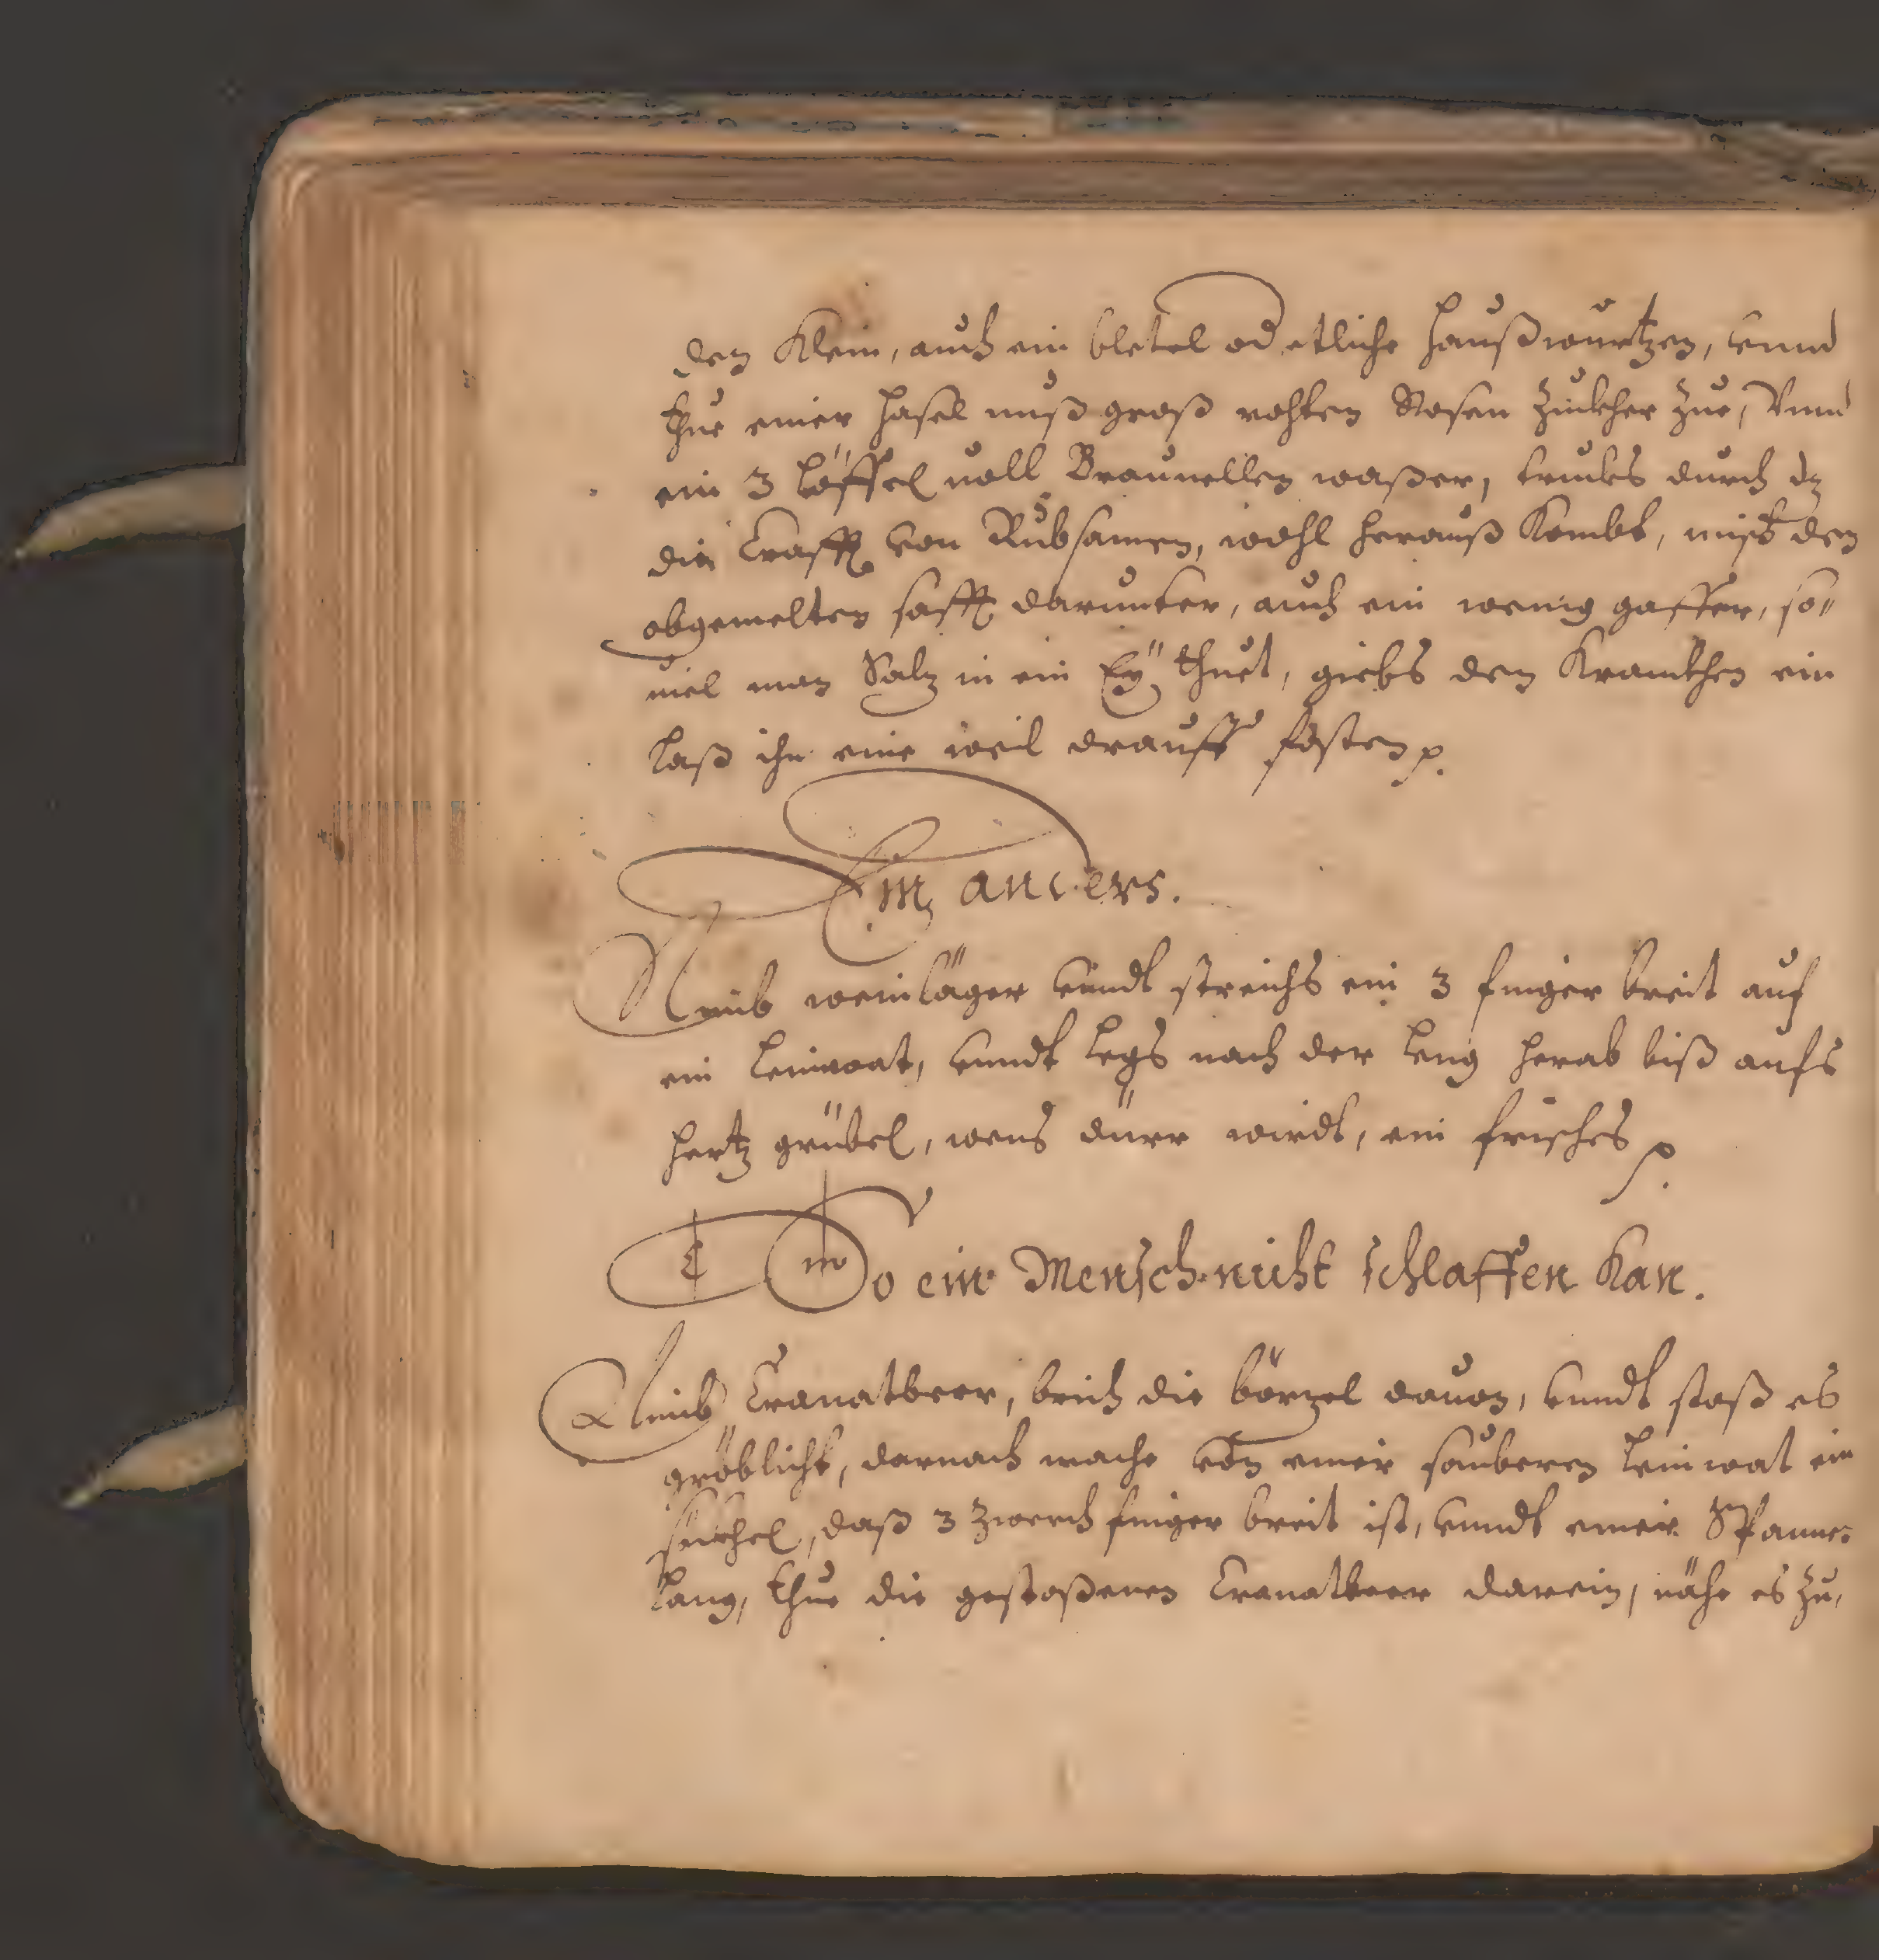 den Klein, auch ein bletel od etliche haußwurtzen, vnnd
thue einer hasel nuß groß rohten Rosen Zuckher Zue, Vnnd
ein 3 löffel voll Braunellen waßer, trucks durch dz
die Crafft von Rubsamen, wohl herauß Kombt, misch den
obgemelten safft darunter, auch ein wenig gaffer, so=
viel man Saltz in ein Eÿ thuet, giebs den Kranckhen ein
laß ihn eine weil drauff fasten.
Ein anders.
Nimb weinläger vnndt streichs ein 3 finger breit auf
ein leinwat, vnndt legs nach der leng herab biß aufs
hertz grübel, wens dürr wirdt, ein frisches
So ein Mensch nicht schlaffen Kan.
Nimb Cranatbeer, brich die börzel dauon, vnndt stoß es
gröblicht, darnach mache von einer sauberen leinwat ein
seckhel, daß 3 zwerch finger breit ist, vnndt einer Spannen
lang, thue die gestoßenen Cranatbeer darein, nähe es zu,